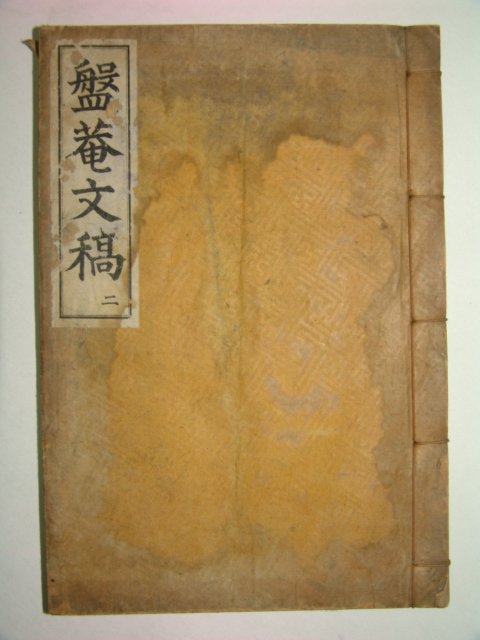 盤菴文稿
二